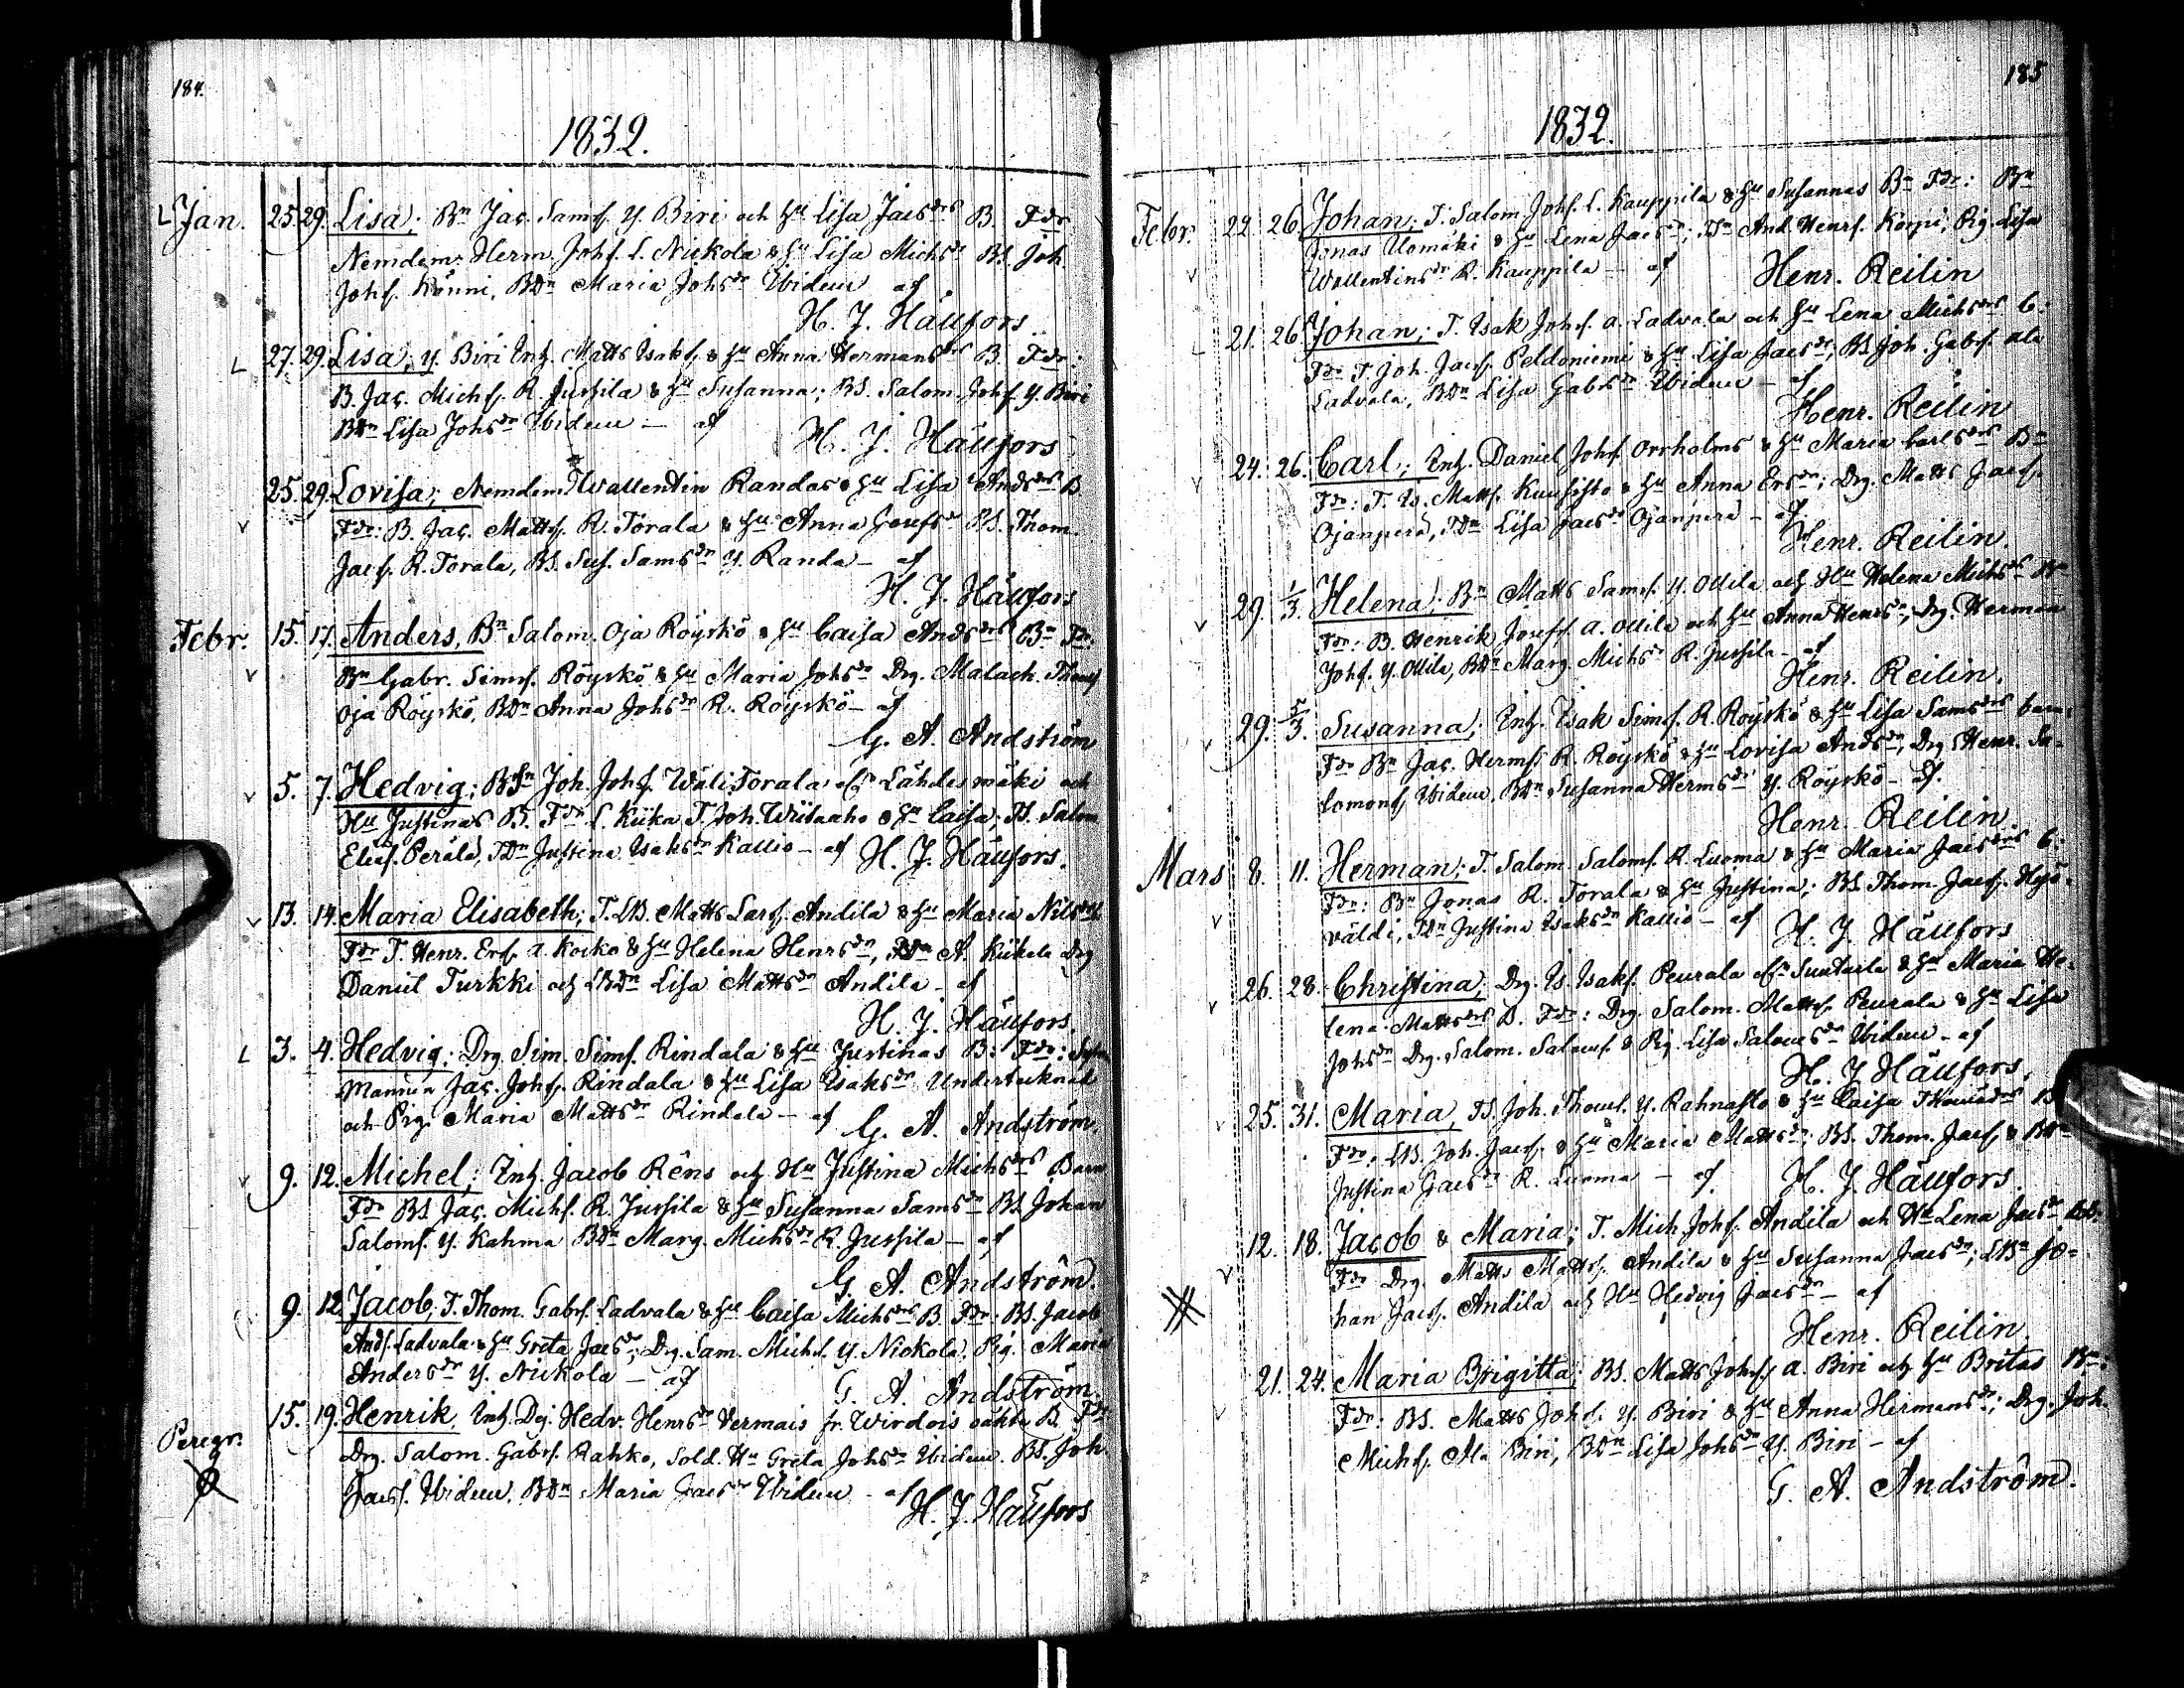 184.
1832.
Jan. 25. 29. Lisa; Bn Jac. Sams. Y. Biri och Hu Lisa Jacsdrs B. Fdr
Nemdem. Herm. Johs. L. Nickola & Hu Lisa Michsdr BS. Joh.
Johs. Könni, BDn Maria Johsdr Ibidem af
H. J. Häufors.
27. 29. Lisa; Y. Biri Inh. Matts Isaks. & Hu Anna Hermansdrs B. Fdr:
B. Jac. Michs. R. Jussila & Hu Susanna; BS. Salom. Johs. Y. Biri
BDn Lisa Johsdr Ibidem — af
H. J. Häufors
25. 29. Lovisa; Nemdem. Wallentin Randas & Hu Lisa Andsdrs B
Fdr: B. Jac. Matts. R. Torala & Hu Anna Josefsdr BS. Thom.
Jacs. R. Torala, BS. Sus. Samsdr Y. Randa — af
H. J. Häufors
Febr. 15. 17. Anders, Bn Salom. Oja Röyskö & Hu Caisa Andsdrs Bn Fdr:
Bn Gabr. Sims. Röyskö & Hu Maria Johsdr Drg. Malach. Thoms
Oja Röyskö, BDn Anna Johsdr R. Röyskö — af
G. A. Andström
5. 7. Hedvig; BSn Joh. Johs. Wäli Torala Lähdesmäki och
Hu Justinas B. Fdr L. Kiika T. Joh. Wiitaaho & Hu Caisa; TS. Salom
Elias. Perälä, TDn Justina Isaksdr Kallio — af H. J. Häufors.
13. 14. Maria Elisabeth; T. LB. Matts Lars. Andila & Hu Maria Nilsdrs
Fdr T. Henr. Ers. a. Kocko & Hu Helena Henrsdr, A. Kiikala Drg
Daniel Turkki och LBDn Lisa Mattsdr Andila — af
H. J. Häufors.
3. 4. Hedvig; Drg Sim. Sims. Rindala & Hu Justinas B: Fdr:
Mannen Jac. Johs. Rindala & Hu Lisa Isaksdr Undertecknad
och Pig. Maria Mattsdr Rindala — af G. A. Andström
9. 12. Michel; Inh. Jacob Rêns och Hu Justina Michsdrs Barn
Fdr BS. Jac. Michs. R. Jussila & Hu Susanna Samsdr BS. Johan
Saloms. Y. Kahma BDn Marg. Michsdr R. Jussila — af
G. A. Andström.
9. 12. Jacob, T. Thom. Gabrs. Ladvala & Hu Caisa Michsdrs B. Fdr: BS. Jacob
Ands. Ladvala & Hu Greta Jacsdr; Drg. Sam. Michs. Y. Nickola, Pig. Maria
Andersdr Y. Nickola — af
G. A. Andström.
Peregr. 15. 19. Henrik, Inh. Dej. Hedv. Henrsdr Vermais fr. Wirdois oäkta B. Fdr
Drg. Salom. Gabrs. Rahko, Sold. Hu Greta Johsdr Ibidem. BS. Joh.
Jacs. Ibidem. BDn Maria Jacsdr Ibidem — af
H. J. Häufors
185
1832.
Febr. 22. 26. Johan; T. Salom. Johs. L. Kauppila & Hu Susannas Bn Fdr: Bn
Jonas Uomäki & Hu Lena Jacsdr; TSn And. Henrs. Korpi, Pig. Lisa
Wallentinsdr R. Kauppila — af Henr. Reilin
21. 26. Johan; T. Isak Johs. a. Ladvala och Hu Lena Michsdrs b:
Fdr T. Joh. Jacs. Peldoniemi & Hu Lisa Jacsdr; BS. Joh. Gabrs. ala
Ladvala, BDn Lisa Gabrsdr Ibidem — af
Henr. Reilin
24. 26. Carl; Inh. Daniel Johs. Orrholms & Hu Maria Carlsdrs Bn
Fdr: T. Is. Matts. Kuusisto & Hu Anna Ersdr; Drg. Matts Jacs.
Ojanperä, TDn Lisa Jacsdr Ojanperä — af
Henr. Reilin.
29. 1/3. Helena; Bn Matts Sams. Y. Ollila och Hu Helena Michsdrs Bn
Fdr: B. Henrik Josefs. a. Ollila och Hu Anna Henrsdr; Drg. Herman
Johs. Y. Ollila, BDn Marg. Michsdr R. Jussila — af
Henr. Reilin.
29. 5/3. Susanna; Inh. Isak Sims. R. Röyskö & Hu Lisa Samsdrs barn
Fdr Bn Jac. Herms. R. Röyskö & Hu Lovisa Andsdr; Drg Henr. Sa-
lomons. Ibidem. BDn Susanna Hermsdr Y. Röyskö — af.
Henr. Reilin
Mars 8. 11. Herman; T. Salom. Saloms. R. Luoma & Hu Maria Jacsdrs b:
Fdr: Bn Jonas R. Torala & Hu Justina; BS. Thom. Jacs. Hyö-
väldi, TDn Justina Isaksdr Kallio — af H. J. Häufors
26. 28. Christina; Drg. Is. Isaks. Peurala Suutarla & Hu Maria He-
lena Mattsdrs B. Fdr: Drg. Salom. Matts. Peurala & Hu Lisa
Johsdr Drg. Salom. Saloms. & Pig. Lisa Salomsdr Ibidem — af
H. J. Häufors,
25. 31. Maria, TS. Joh. Thoms. Y. Rahnasto & Hu Caisa Thomsdrs B
Fdr: LB. Joh. Jacs. & Hu Maria Mattsdr; BS. Thom. Jacs. & BDn
Justina Jacsdr R. Luoma — af. H. J. Häufors.
12. 18. Jacob & Maria; T. Mich. Johs. Andila och Hu Lena Jacsdr BB.
Fdr Drg. Matts Matts. Andila & Hu Susanna Jacsdr; LBn Jo-
han Jacs. Andila och Hu Hedvig Jacsdr — af
Henr. Reilin.
21. 24. Maria Brigitta; BS. Matts Johs. a. Biri och Hu Britas Bn:
Fdr: BS. Matts Johs. Y. Biri & Hu Anna Hermansdr; Drg. Joh.
Michs. Ala Biri, BDn Lisa Johsdr Y. Biri — af
G. A. Andström.